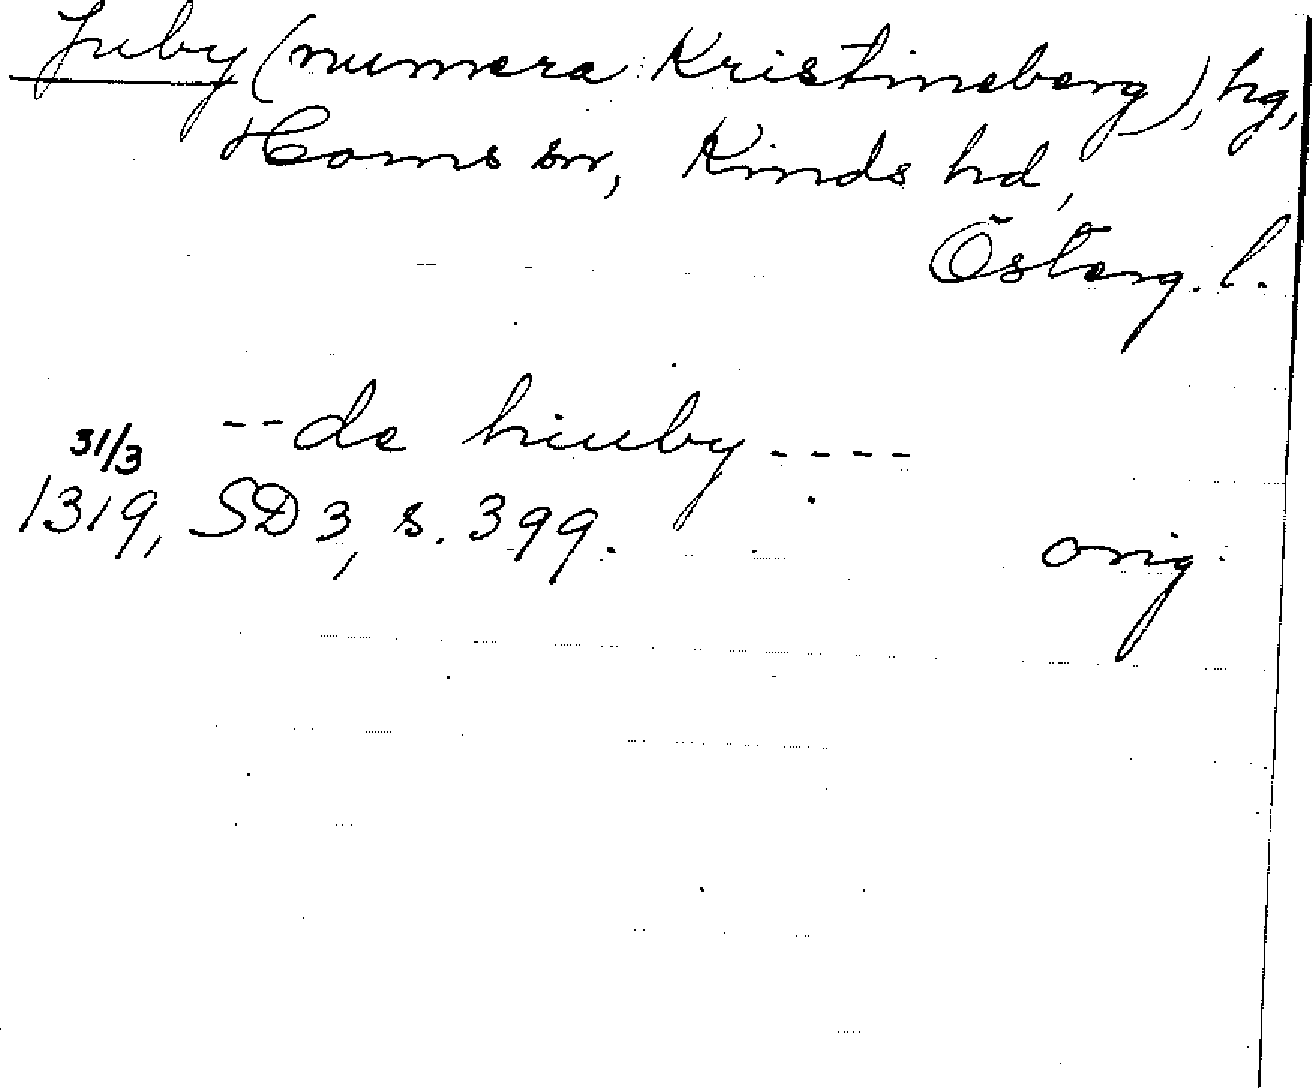 Juby (numera Kristineberg), hg,
Horns sn, Kinds hd,
Österg. l.
-- de hiuby ----
31/3
1319, SD 3, s. 399.
orig.